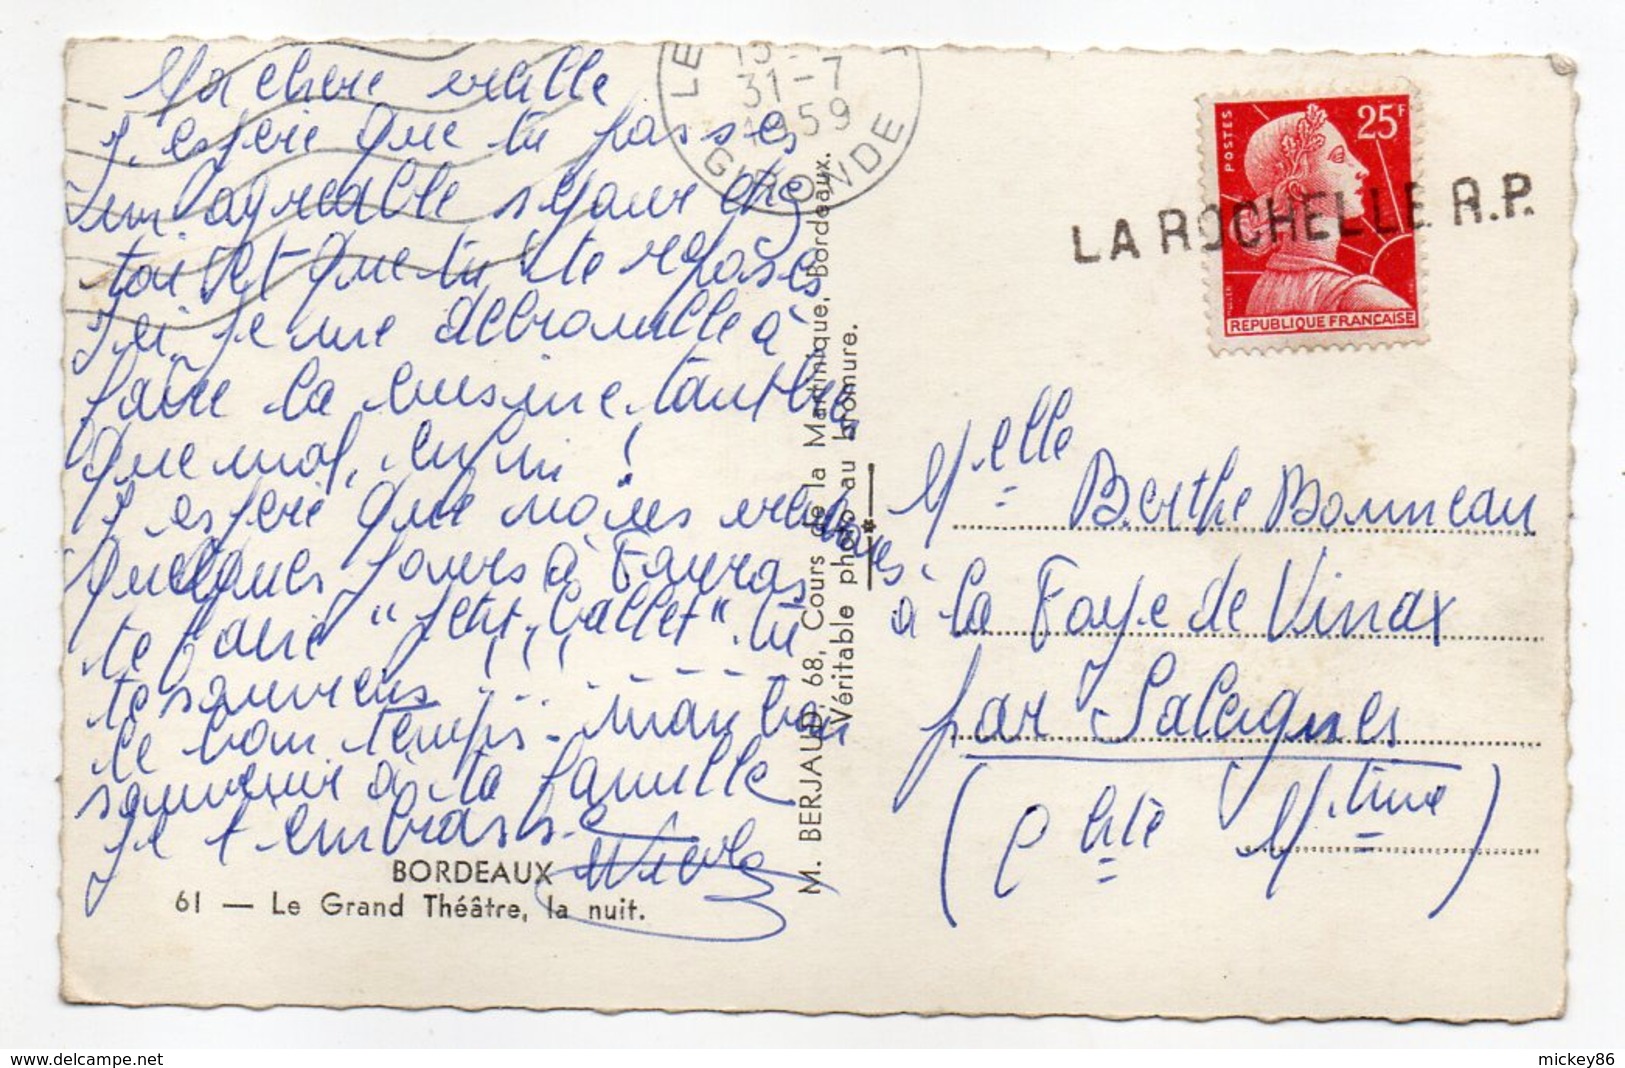 Ma chère vieille
J'espère que tu passes
un agréable séjour chez
toi et que tu te reposes
Ici je me débrouille à
faire la cuisine tant bien
que mal, enfin !
J'espère que nous
quelques jours à Fouras
te faire "petit ballet" tu
te souviens !!! ......
le bon temps. mon bon
souvenir à ta famille
Je t'embrasse
BORDEAUX
61 — Le Grand Théâtre, la nuit.
LE
31-7
1959
GIRONDE
M. BERJAUD, 68, Cours de la Martinique, Bordeaux.
Véritable photo au bromure.
POSTES
25F
MULLER
REPUBLIQUE FRANÇAISE
LA ROCHELLE R.P.
Melle Berthe Bonneau
à la Faye de Vinax
par Saleignes
(Chte Mtime)
delcampe.net
mickey86